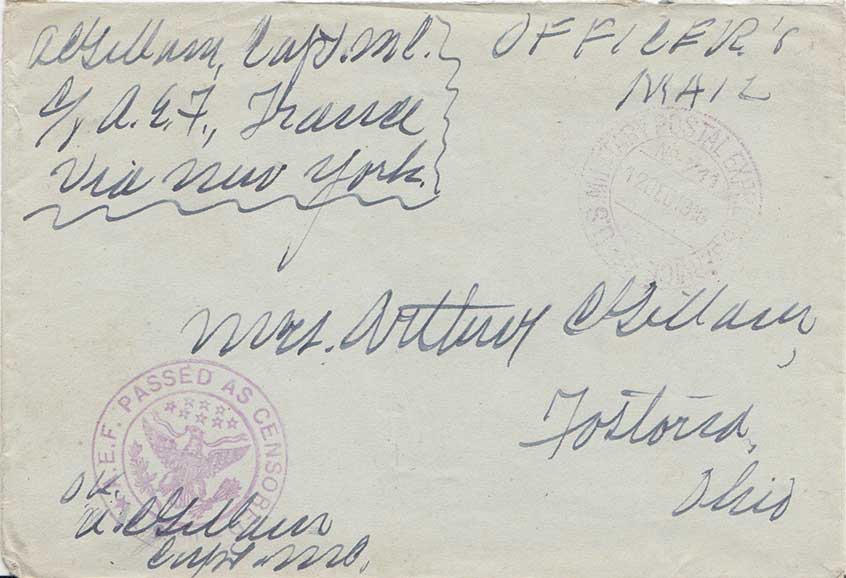 A C Gillam, Capt. M C.
c/o A. E. F., France
Via New York.
OFFICER'S
MAIL
U.S. MILITARY POSTAL EXPRESS SERVICE
No.
12 DEC 1918
Mrs. Arthur C Gillam,
Fostoria,
Ohio
A.E.F. PASSED AS CENSORED
OK.
A. C Gillam
Capt. M C.